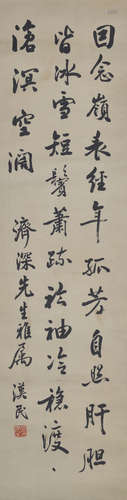 回念嶺表經年孤芳自照肝膽
皆冰雪短鬢蕭疏襟袖冷穩渡
滄溟空闊
濟深先生雅屬 漢民